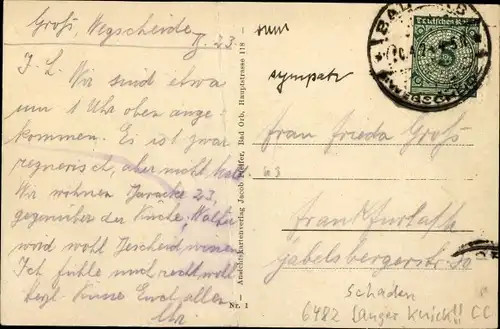 Groß, Wegscheide
B. 23
I. L. Wir sind etwa
um 1 Uhr oben ange-
kommen. Es ist zwar
regnerisch, aber nicht kalt.
Wir wohnen Baracke 23,
gegenüber der Küche, Walter
wird wohl Bescheid wissen.
Ich fühle mich recht wohl
Herzl. Küsse Euch allen
Ansichtskartenverlag Jacob Pfeiffer, Bad Orb, Hauptstrasse 118
Nr. 1
sympath
BAD ORB
Deutsches Reich
5
Frau Frieda Groß
Frankfurt a/M
Gabelsbergerstr.
Schaden
6482 langer Knick!! CC